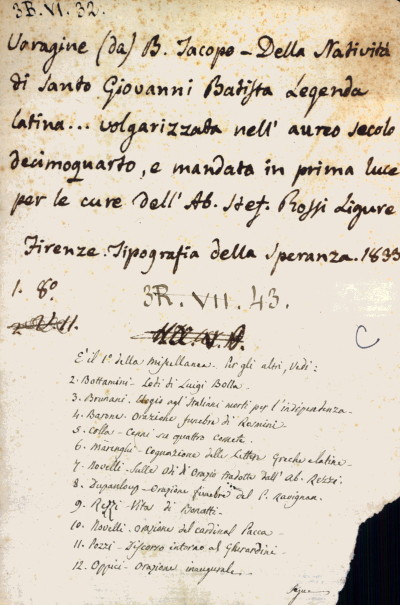 3R.VI.32.
Voragine (da) B. Jacopo – Della Natività
di Santo Giovanni Batista Legenda
latina... volgarizzata nell' aureo secolo
decimoquarto, e mandata in prima luce
per le cure dell' Ab. Stef. Rossi Ligure
Firenze. Tipografia della Speranza. 1833
1. 8º
3R. VII. 43.
C
È il 1º della Miscellanea. Per gli altri, Vedi:
2. Bottamini – Lodi di Luigi Bolla.
3. Brunani. Elogio agl' Italiani morti per l'independenza.
4. Barone. Orazione funebre di Rosmini
5. Colla – Cenni su quattro comete.
6. Marenghi – Cognazione delle Lettere Greche e latine –
7. Novelli – Sulle Odi di Orazio tradotte dall' Ab. Rezzi.
8. Dupanloup – Orazione funebre del P. Ravignan.
9. Rezzi – Vita di Bonatti –
10. Novelli. Orazione del cardinal Pacca –
11. Pozzi – Discorso intorno al Gherardini
12. Oppici – Orazione inaugurale –
segue